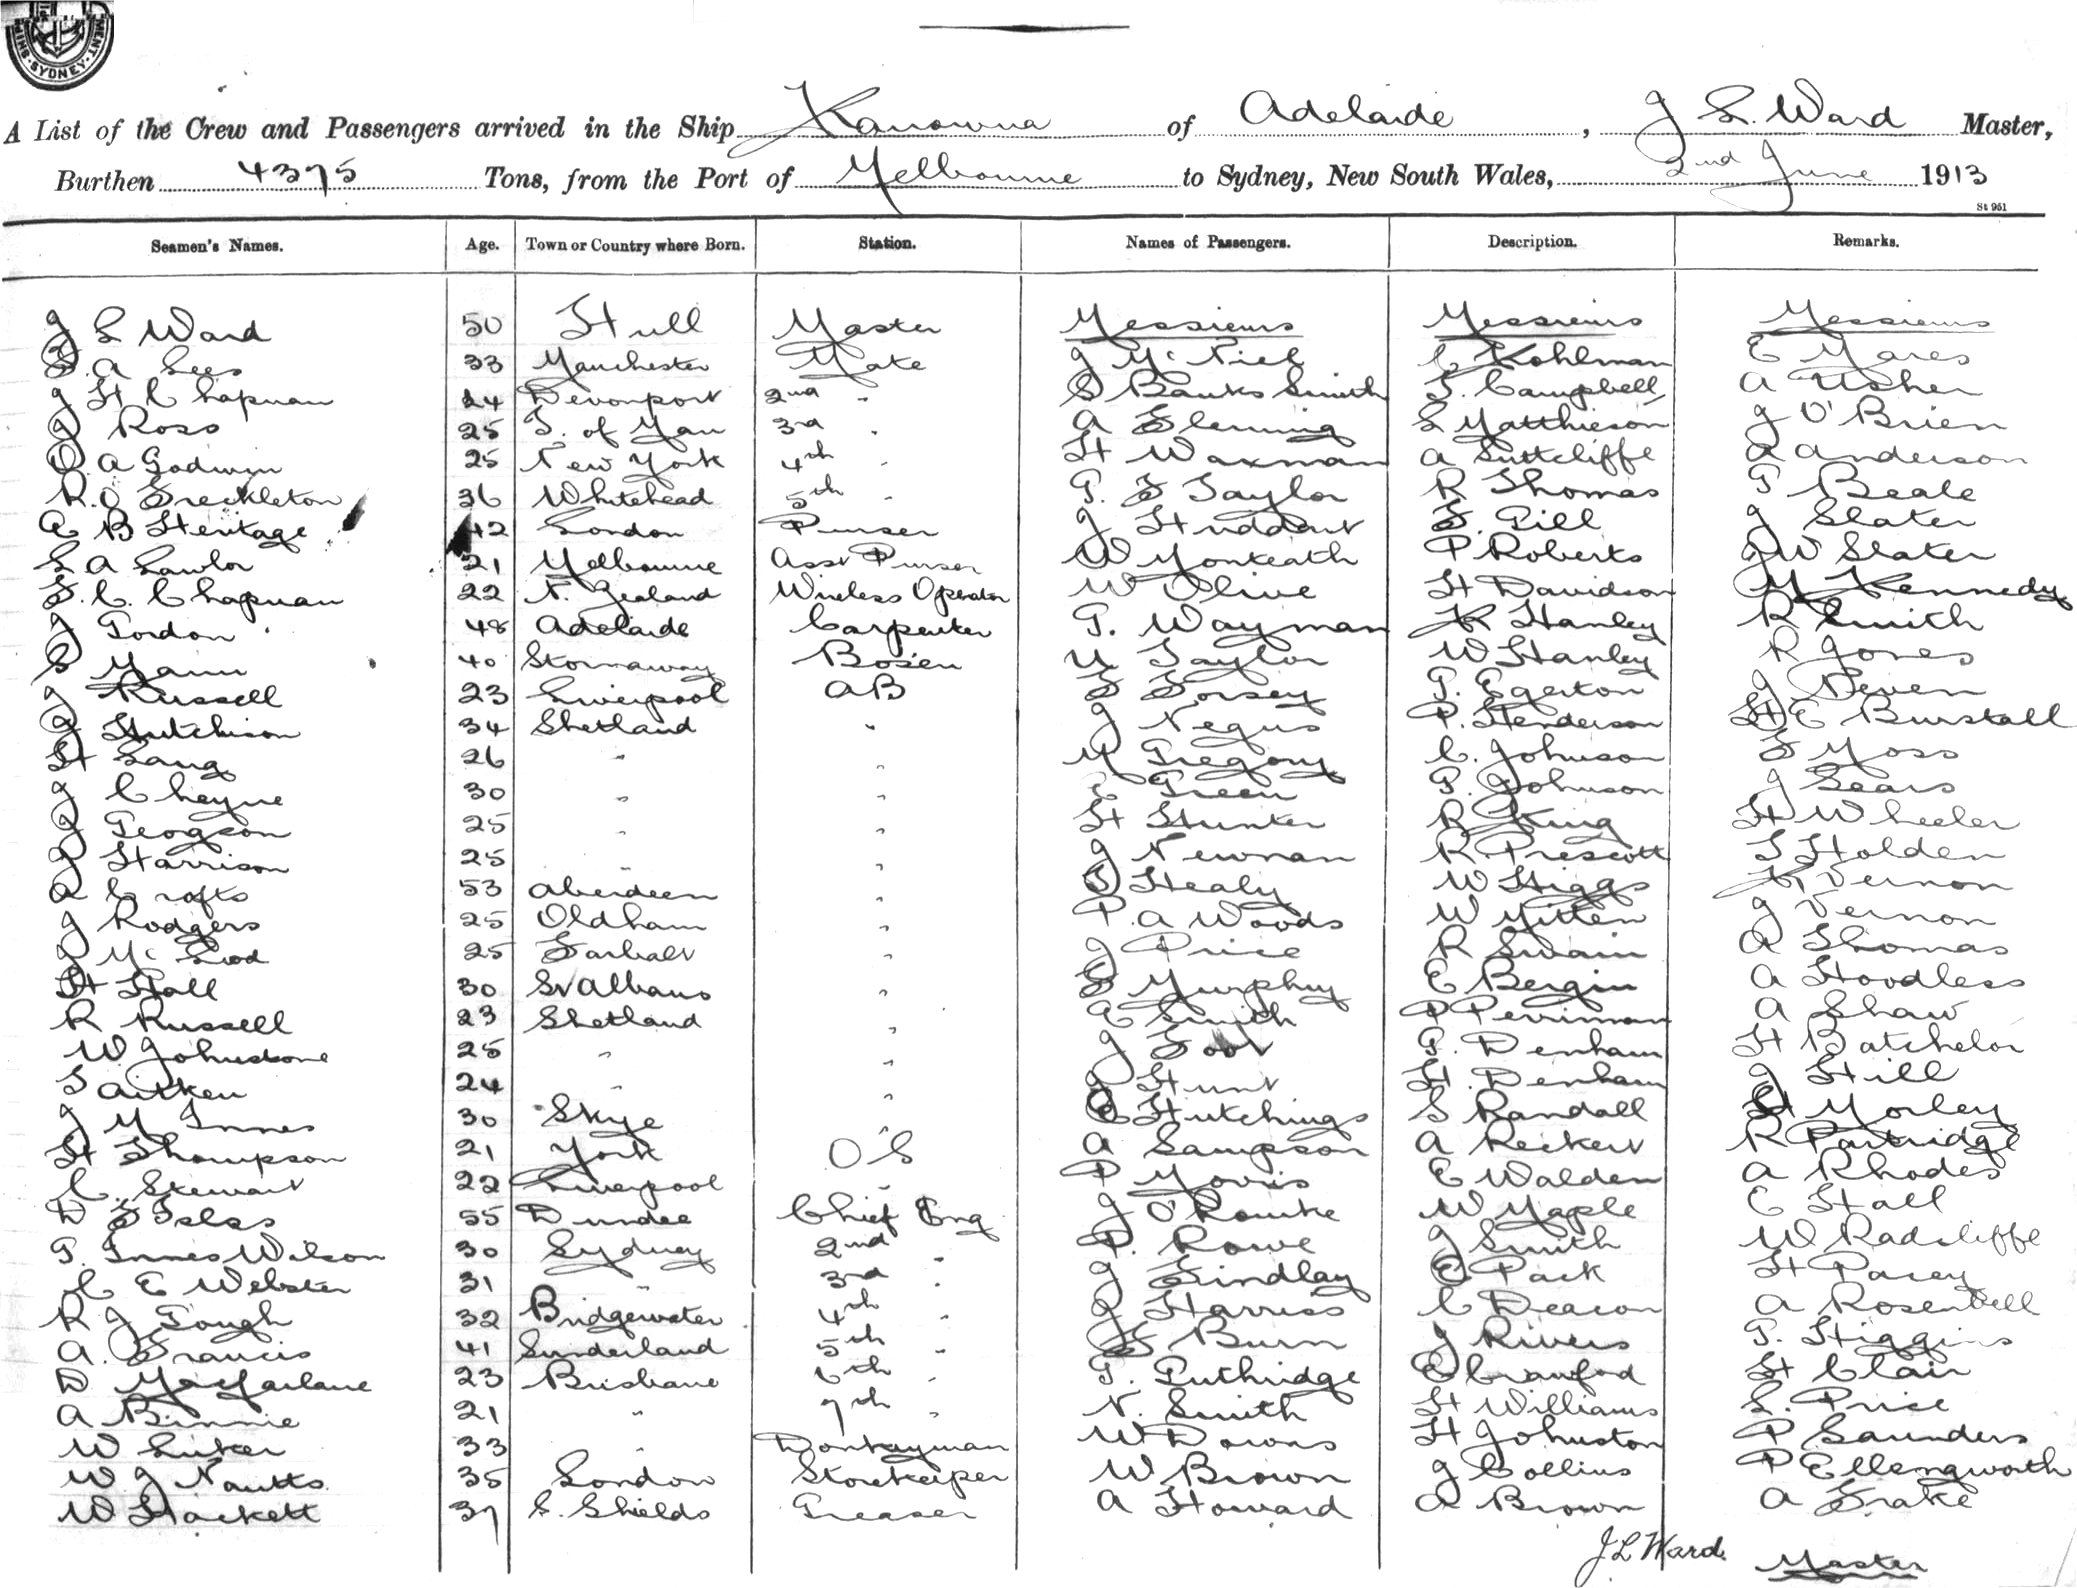 SYDNEY
A List of the Crew and Passengers arrived in the Ship Kanowna of Adelaide, J L. Ward Master,
Burthen 4375 Tons, from the Port of Melbourne to Sydney, New South Wales, 2nd June 1913
St 951
Seamen's Names. Age. Town or Country where Born. Station. Names of Passengers. Description. Remarks.
J L Ward 50 Hull Master Messieurs Messieurs Messieurs
F. A Lees 33 Manchester Mate J McNiel C Kohlman E Mares
J H Chapman 24 Devonport 2nd " S Banks Smith T. Campbell A Usher
J Ross 25 I. of Man 3rd " A Fleming L Matthieson J O'Brien
O A Godwin 25 New York 4th " H Waxman A Suttcliffe A Anderson
R. O Freckleton 36 Whitehead 5th " G. F Taylor R Thomas G Beale
A B Heritage 42 London Purser J Huddart F. Gill J Slater
L A Lawlor 21 Melbourne Asst Purser W Monteath P Roberts J W Slater
F. C. Chapman 22 N. Zealand Wireless Operator W Olive H Davidson M Kennedy
J Gordon 48 Adelaide Carpenter G. Wayman K Hanley R Smith
S Mann 40 Stornaway Bosen Taylor W Hanley R Jones
J Russell 23 Liverpool AB F Forsey G. Egerton J Neven
J Hutchison 34 Shetland " J Negus P. Henderson H E Burstall
H Lang 26 " " M Gregory C. Johnson F Moss
J Cheyne 30 " " E Green G. Johnson J Sears
J Georgeson 25 " " H Hunter R King H Wheeler
J Harrison 25 " " J Newman R. Prescott T Holden
A Crofts 53 Aberdeen " T Healy W Higgs Vernon
J Rodgers 25 Oldham " P. A Woods W Mitten J Vernon
J McLeod 25 " J Price R Swain A Thomas
H Hall 30 St Albans " Murphy E Bergin A Hoodless
R Russell 23 Shetland " E Smith P Perriman A Shaw
W Johnstone 25 " " J Foot G. Denham H Batchelor
T Aitken 24 " " J Hunt H. Denham J Hill
J M Innes 30 Skye " C Hutchings S Randall H Morley
H Thompson 21 York OS A Sampson A Reckert R Partridge
C. Stewart 22 Liverpool " P Morris E Walden A Rhodes
D F Isles 55 Dundee Chief Eng J O'Rourke W Maple E Hall
G. Innes Wilson 30 Sydney 2nd " P. Rowe J Smith W Radcliffe
C E Webster 31 " 3rd " J Findlay E Pack H Pacey
R J Gough 32 Bridgewater 4th " J Harriss C Deacon A Rosenbell
A. Francis 41 Sunderland 5th " F Burn J Rivers G. Higgins
D Macfarlane 23 Brisbane 6th " G. Puthridge E Crawford H Clair
A Binnie 21 " 7th " N. Smith H Williams L. Price
W Luker 33 " Donkeyman W Downs H Johnston P Saunders
W J Nautts 35 London Storekeeper W Brown J Collins P Ellengworth
W Hackett 37 S. Shields Greaser A Howard A Brown A Frake
J L Ward. Master